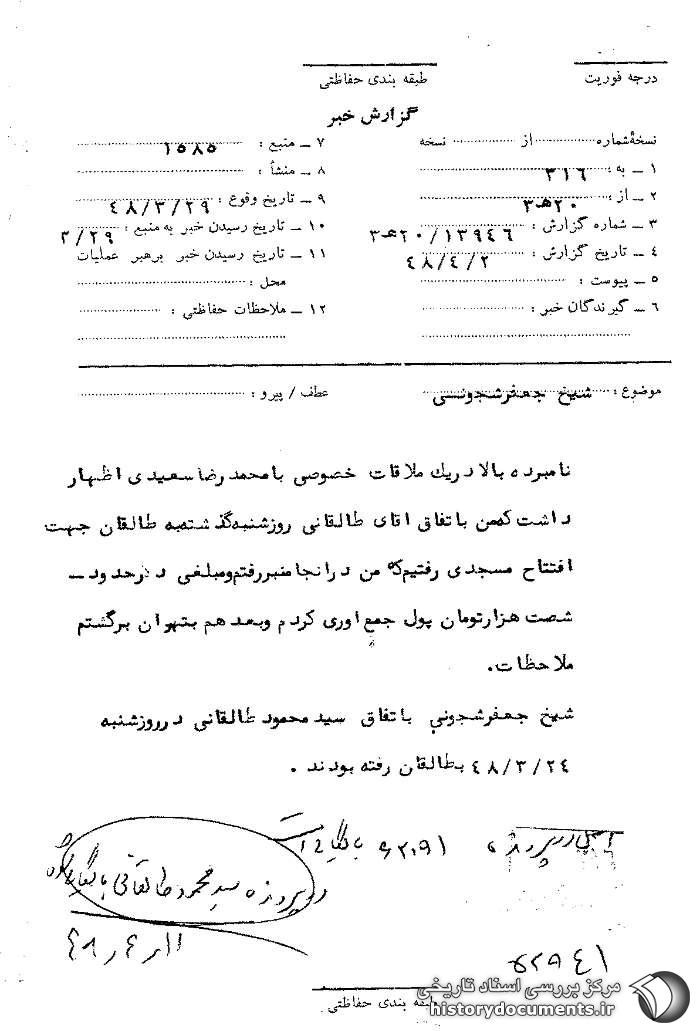 درجه فوریت
طبقه بندی حفاظتی
گزارش خبر
نسخهٔ شماره ........ از ........ نسخه
۱ ـ به : ۳۱٦
۲ ـ از : ۲۰هـ۳
۳ ـ شماره گزارش : ۱۳۹٤٦/۲۰هـ۳
٤ ـ تاریخ گزارش : ٤۸/٤/۲
۵ ـ پیوست :
٦ ـ گیرندگان خبر :
۷ ـ منبع : ۱۵۸۵
۸ ـ منشأ :
۹ ـ تاریخ وقوع : ٤۸/۳/۲۹
۱۰ ـ تاریخ رسیدن خبر به منبع : ۳/۲۹
۱۱ ـ تاریخ رسیدن خبر برهبر عملیات
محل :
۱۲ ـ ملاحظات حفاظتی :
موضوع : شیخ جعفرشجونی
عطف / پیرو :
نامبرده بالا دریك ملاقات خصوصی با محمد رضا سعیدی اظهار
داشت که من باتفاق اقای طالقانی روزشنبه گذشته به طالقان جهت
افتتاح مسجدی رفتیم که من درانجا منبررفتم ومبلغی در حدود ـ
شصت هزارتومان پول جمع اوری کردم وبعد هم بتهران برگشتم
ملاحظات.
شیخ جعفرشجونی باتفاق سید محمود طالقانی در روزشنبه
٤۸/۳/۲٤ بطالقان رفته بودند .
اصل در پرونده
بایگانی
در پرونده سید محمود طالقانی بایگانی شود
٤۸/٤/۱۱
طبقه بندی حفاظتی
مرکز بررسی اسناد تاریخی
historydocuments.ir